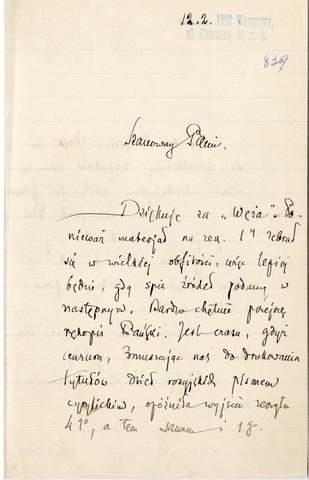 12.2. 1903 Warszawa,
839
Szanowny Panie,
Dziękuję za „Węża". Po-
nieważ materjał na zesz. 1y zebrał
się w wielkiej obfitości, więc lepiej
będzie, gdy spis źródeł podamy w
następnym. Bardzo chętnie przejrzę
rękopis Pański. Jest czas, gdyż
cenzura, zmuszając nas do drukowania
tytułów dzieł rosyjskich pismem
cyrylickiem, opóźniła wyjście zeszytu
4go, a tem samem i 1go.